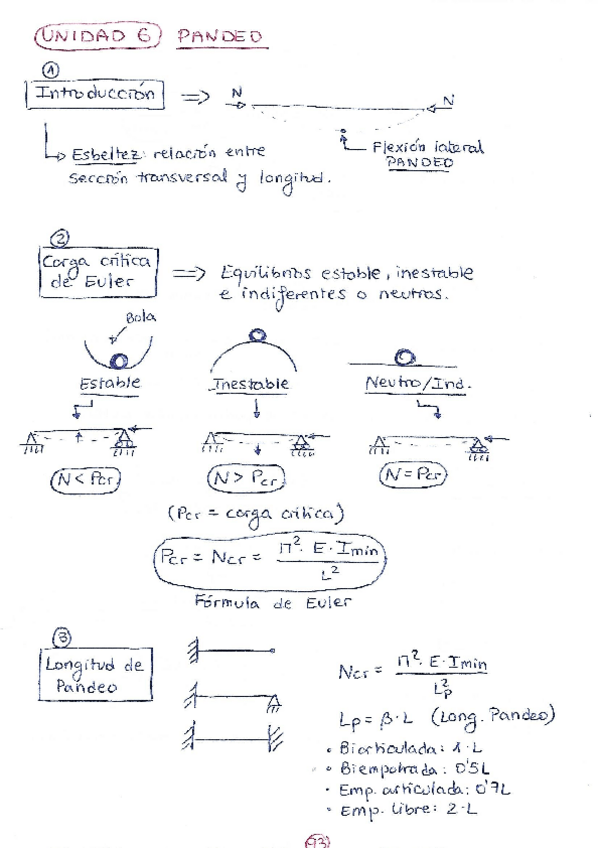 UNIDAD 6 PANDEO
1
Introducción => N N
Flexión lateral
PANDEO
Esbeltez: relación entre
sección transversal y longitud.
2
Carga crítica
de Euler
=> Equilibrios estable, inestable
e indiferentes o neutros.
Bola
Estable Inestable Neutro/Ind.
N < Pcr N > Pcr N = Pcr
(Pcr = carga crítica)
Pcr = Ncr = π²·E·Imin / L²
Fórmula de Euler
3
Longitud de
Pandeo
Ncr = π²·E·Imin / Lp²
Lp = β·L (Long. Pandeo)
• Biarticulada: 1·L
• Biempotrada: 0'5L
• Emp. articulada: 0'7L
• Emp. libre: 2·L
93